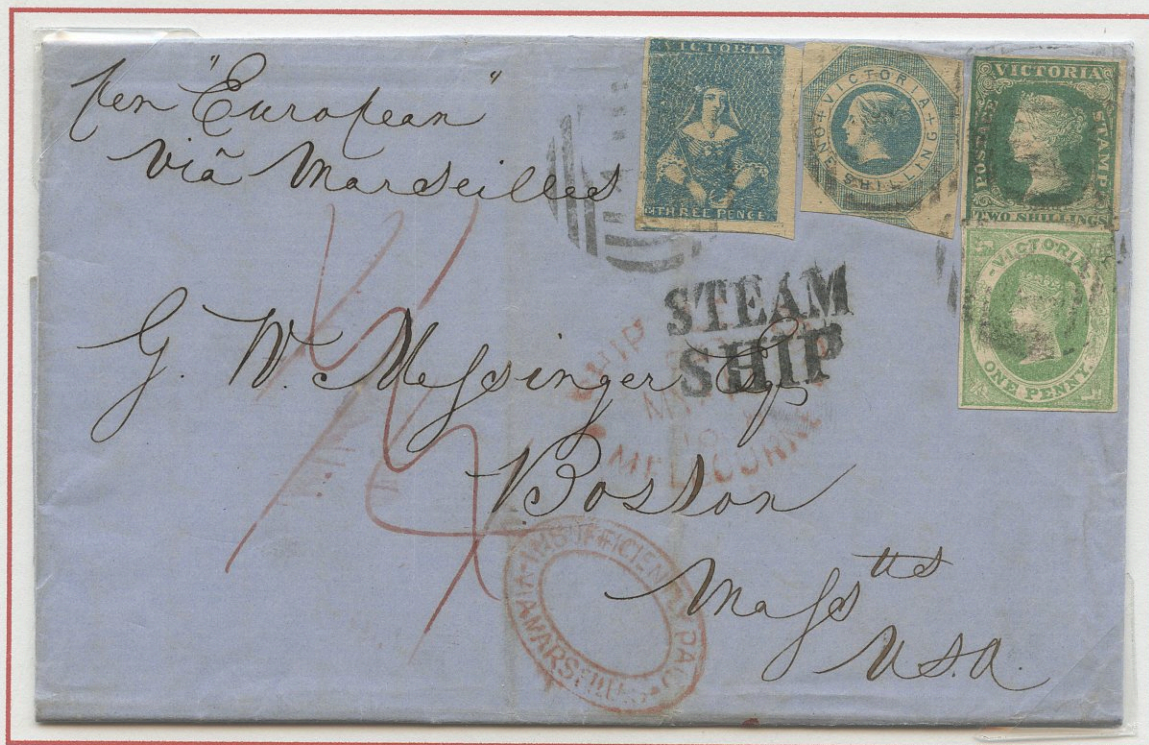 per "European"
viã Marseilles
VICTORIA
THREE PENCE
VICTORIA
ONE SHILLING
VICTORIA
POSTAGE STAMP
TWO SHILLINGS
VICTORIA
ONE PENNY.
STEAM
SHIP
SHIP
MELBOURNE
G. W. Messinger Esqr
Boston
Masstts
U.S.A.
INSUFFICIENTLY PAID
VIA MARSEILLES